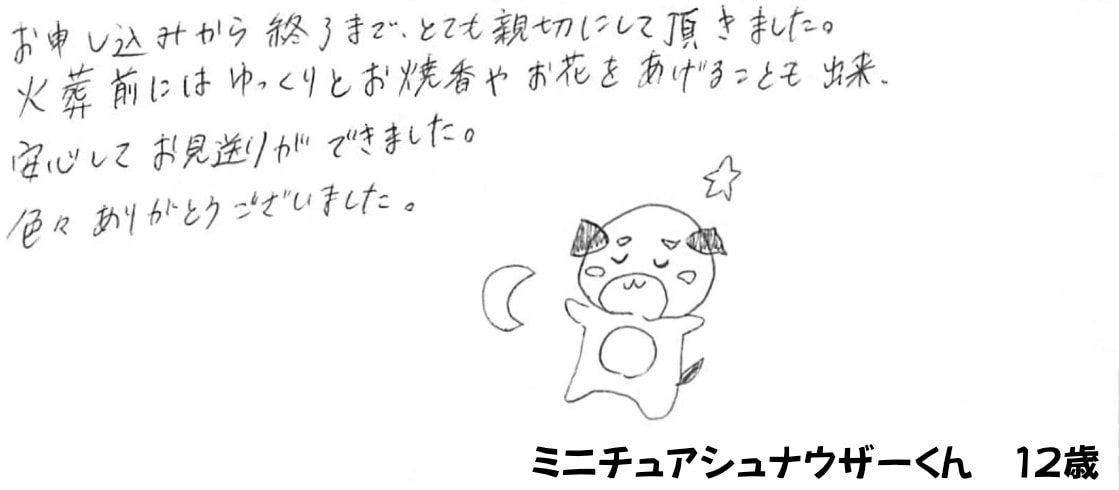 お申し込みから終了まで、とても親切にして頂きました。
火葬前にはゆっくりとお焼香やお花をあげることも出来、
安心してお見送りができました。
色々ありがとうございました。
ミニチュアシュナウザーくん　12歳